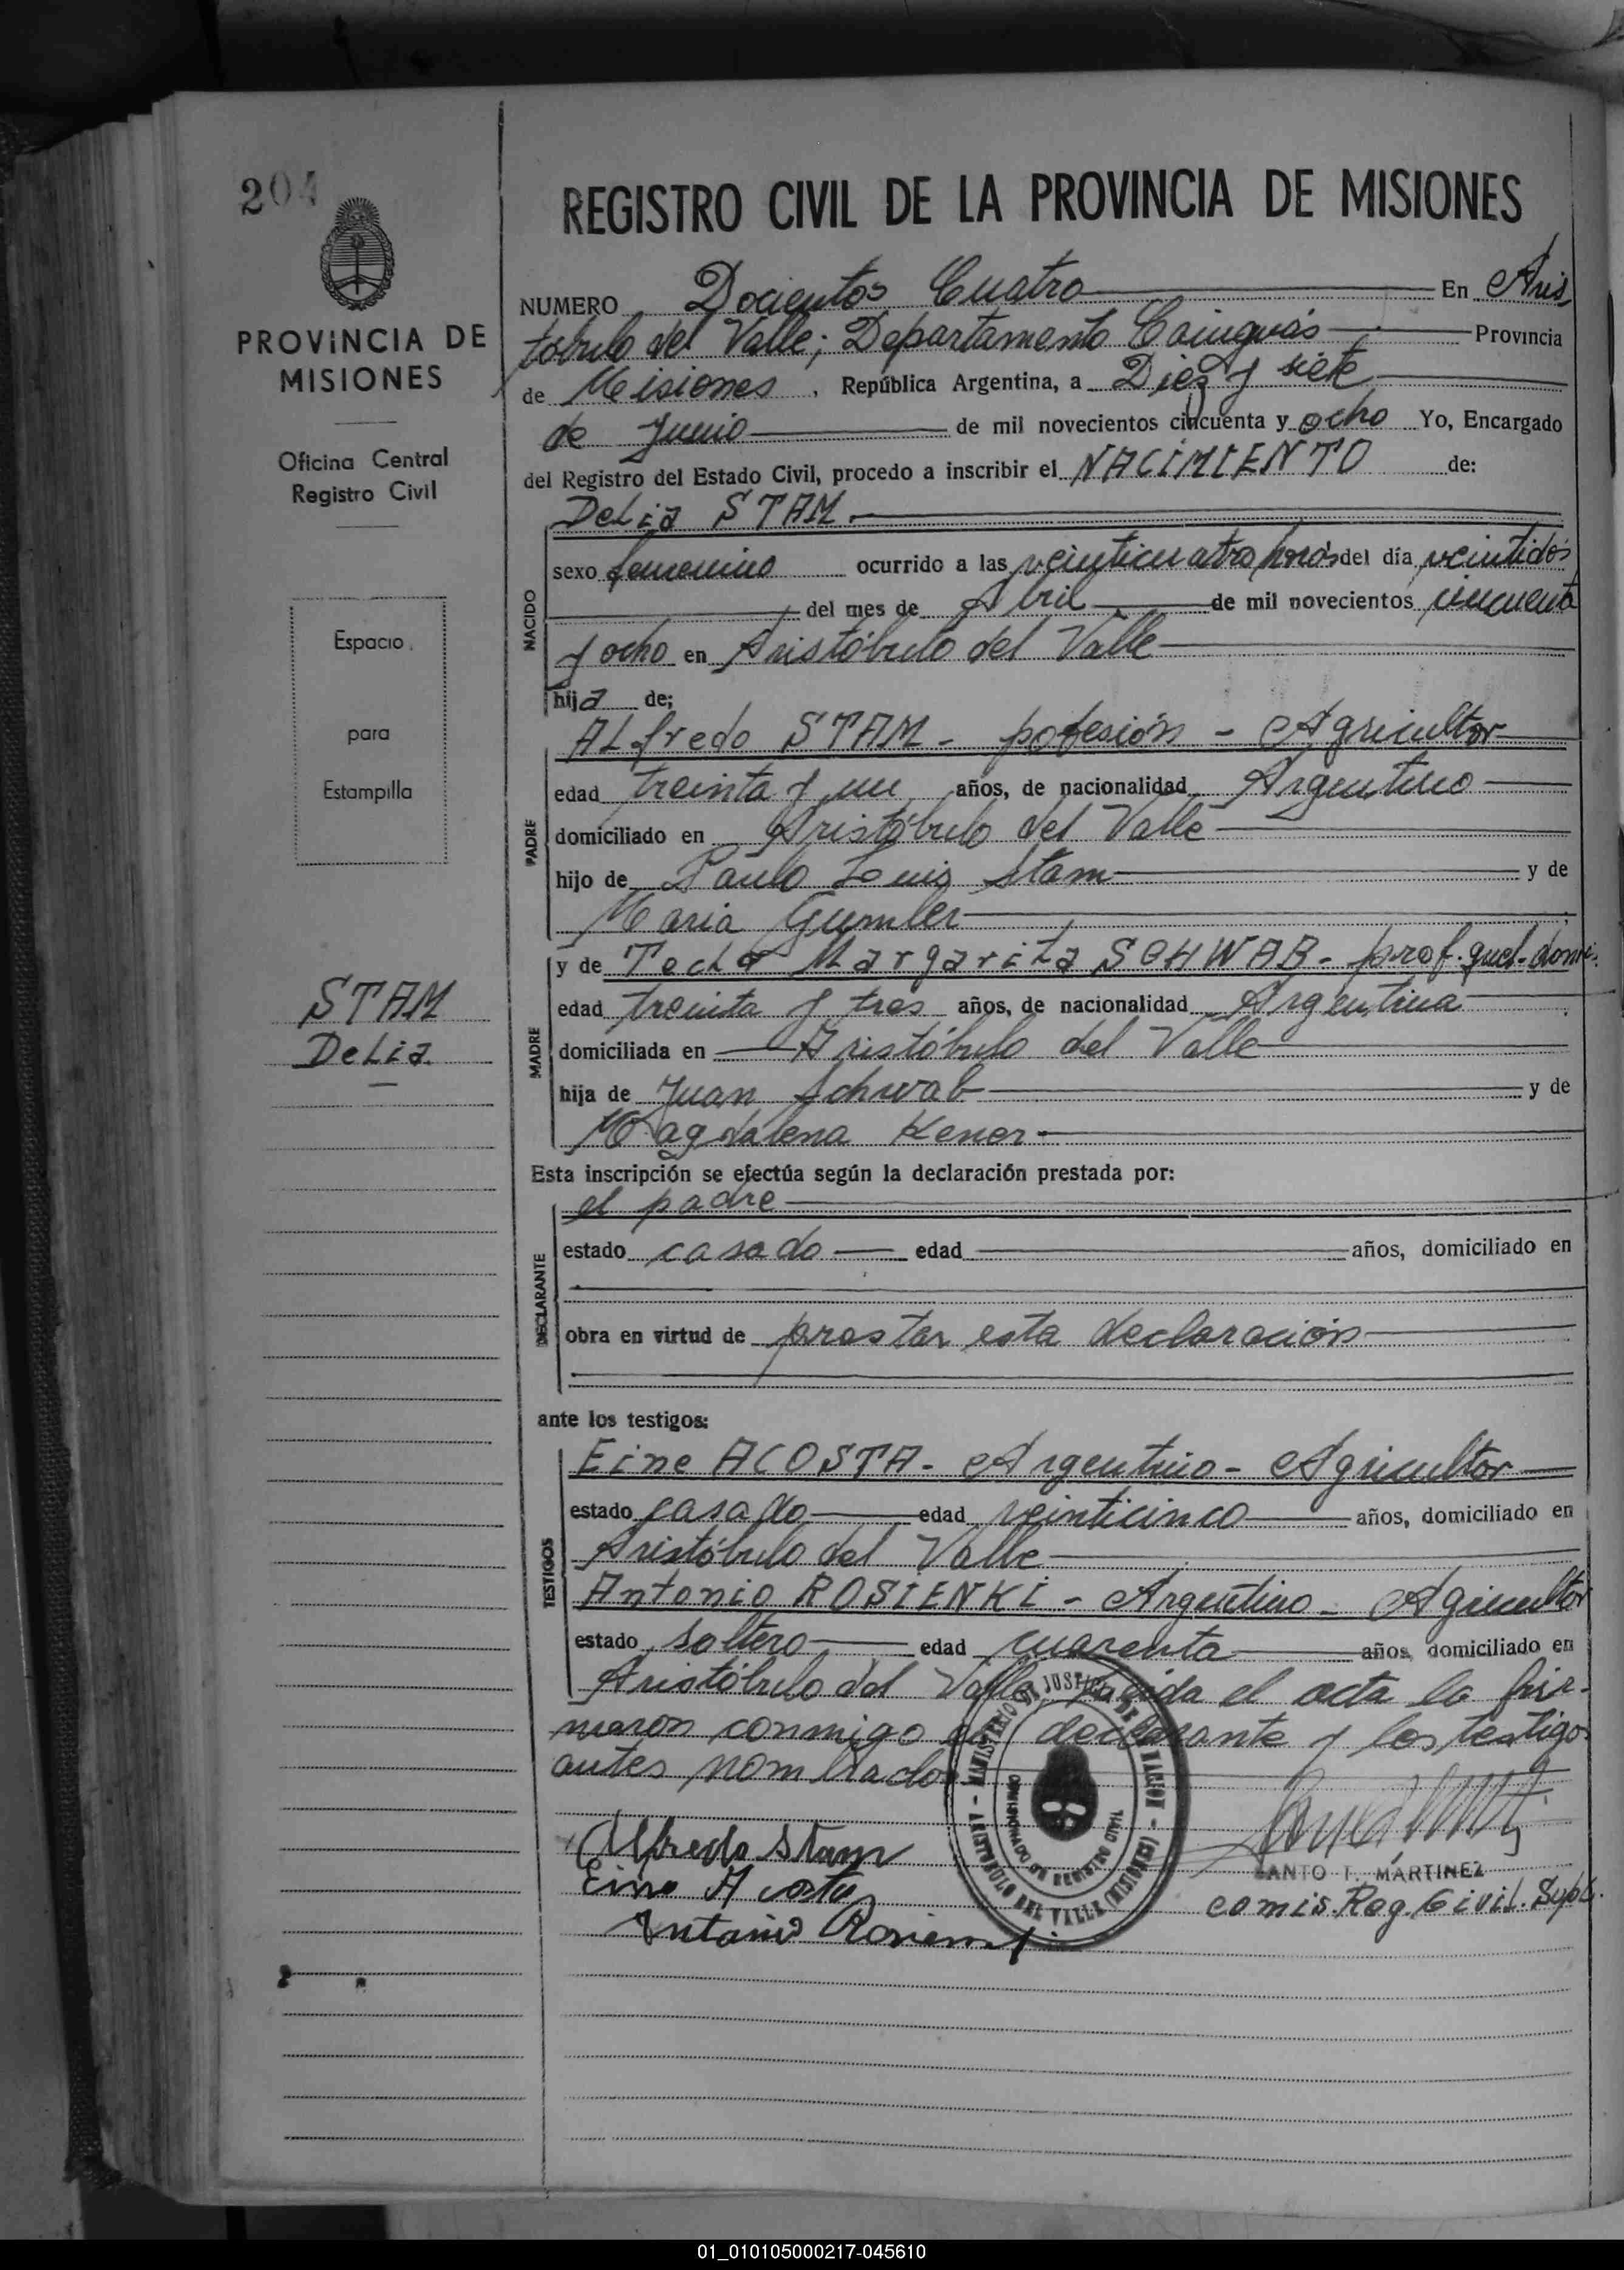 204
PROVINCIA DE
MISIONES
Oficina Central
Registro Civil
Espacio
para
Estampilla
STAM
Delia
REGISTRO CIVIL DE LA PROVINCIA DE MISIONES
NUMERO Docientos Cuatro En Aris
tóbulo del Valle; Departamento Cainguás Provincia
de Misiones, República Argentina, a Diez y siete
de Junio de mil novecientos cincuenta y ocho Yo, Encargado
del Registro del Estado Civil, procedo a inscribir el NACIMIENTO de:
Delia STAM.
NACIDO
sexo femenino ocurrido a las veinticuatro horas del día veintidós
del mes de Abril de mil novecientos cincuenta
y ocho en Aristóbulo del Valle
hija de;
PADRE
Alfredo STAM - pofesión - Agricultor
edad treinta y un años, de nacionalidad Argentino
domiciliado en Aristóbulo del Valle
hijo de Paulo Luis Stam y de
Maria Gumler
MADRE
y de Margarita SCHWAB - prof. quel-domes.
edad treinta y tres años, de nacionalidad Argentina
domiciliada en Aristóbulo del Valle
hija de Juan Schwab y de
Magdalena Kener
Esta inscripción se efectúa según la declaración prestada por:
DECLARANTE
el padre
estado casado edad años, domiciliado en
obra en virtud de prestar esta declaración
ante los testigos:
TESTIGOS
Eine ACOSTA - Argentino - Agricultor
estado casado edad veinticinco años, domiciliado en
Aristóbulo del Valle
Antonio ROSIENKI - Argentino - Agricultor
estado soltero edad cuarenta años, domiciliado en
Aristóbulo del Valle, leída el acta la fir-
maron conmigo el declarante y los testigos
antes nombrados
MINISTERIO DE JUSTICIA DE LA NACION - ARISTOBULO DEL VALLE (MISIONES) -
COMISIONADO DE REGISTRO CIVIL
Alfredo Stam
Eine Acosta
Antonio
SANTO T. MARTINEZ
comis. Reg. Civil. Supl.
01_010105000217-045610